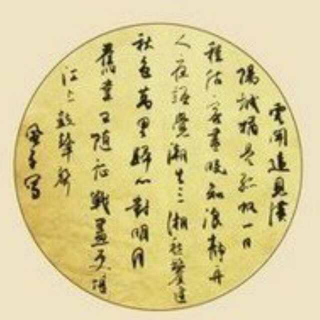 雲開遠見漢
陽城猶是孤帆一日
程估客晝眠知浪靜舟
人夜語覺潮生三湘愁鬢逢
秋色萬里歸心對明月
舊業已随征戰盡更堪
江上鼓鼙聲